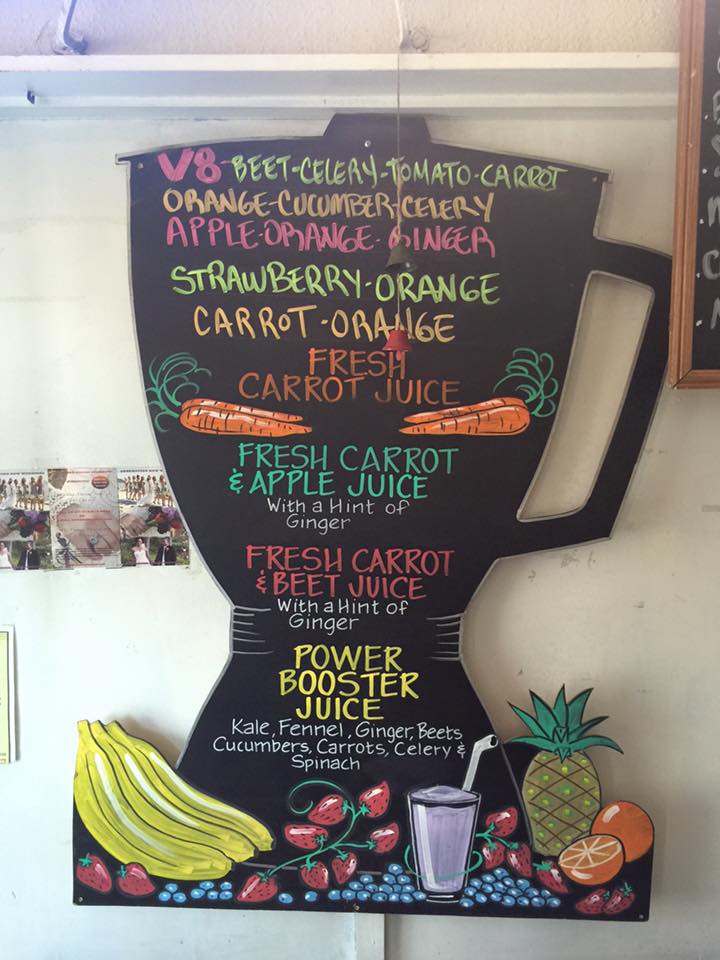 V8 BEET-CELERY-TOMATO-CARROT
ORANGE-CUCUMBER-CELERY
APPLE-ORANGE-GINGER
STRAWBERRY-ORANGE
CARROT-ORANGE
FRESH
CARROT JUICE
FRESH CARROT
& APPLE JUICE
With a Hint of
Ginger
FRESH CARROT
& BEET JUICE
With a Hint of
Ginger
POWER
BOOSTER
JUICE
Kale, Fennel, Ginger, Beets
Cucumbers, Carrots, Celery &
Spinach